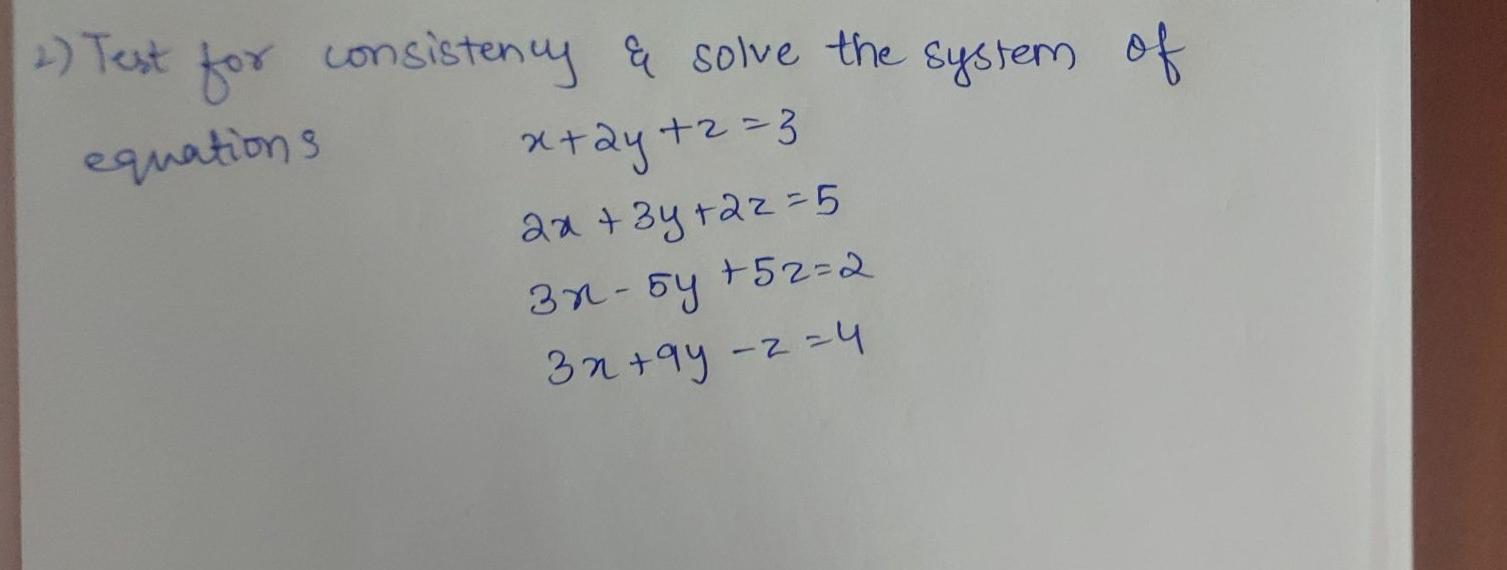 2) Test for consistency & solve the system of
equations x+2y+z=3
2x+3y+2z=5
3x-5y+5z=2
3x+9y-z=4